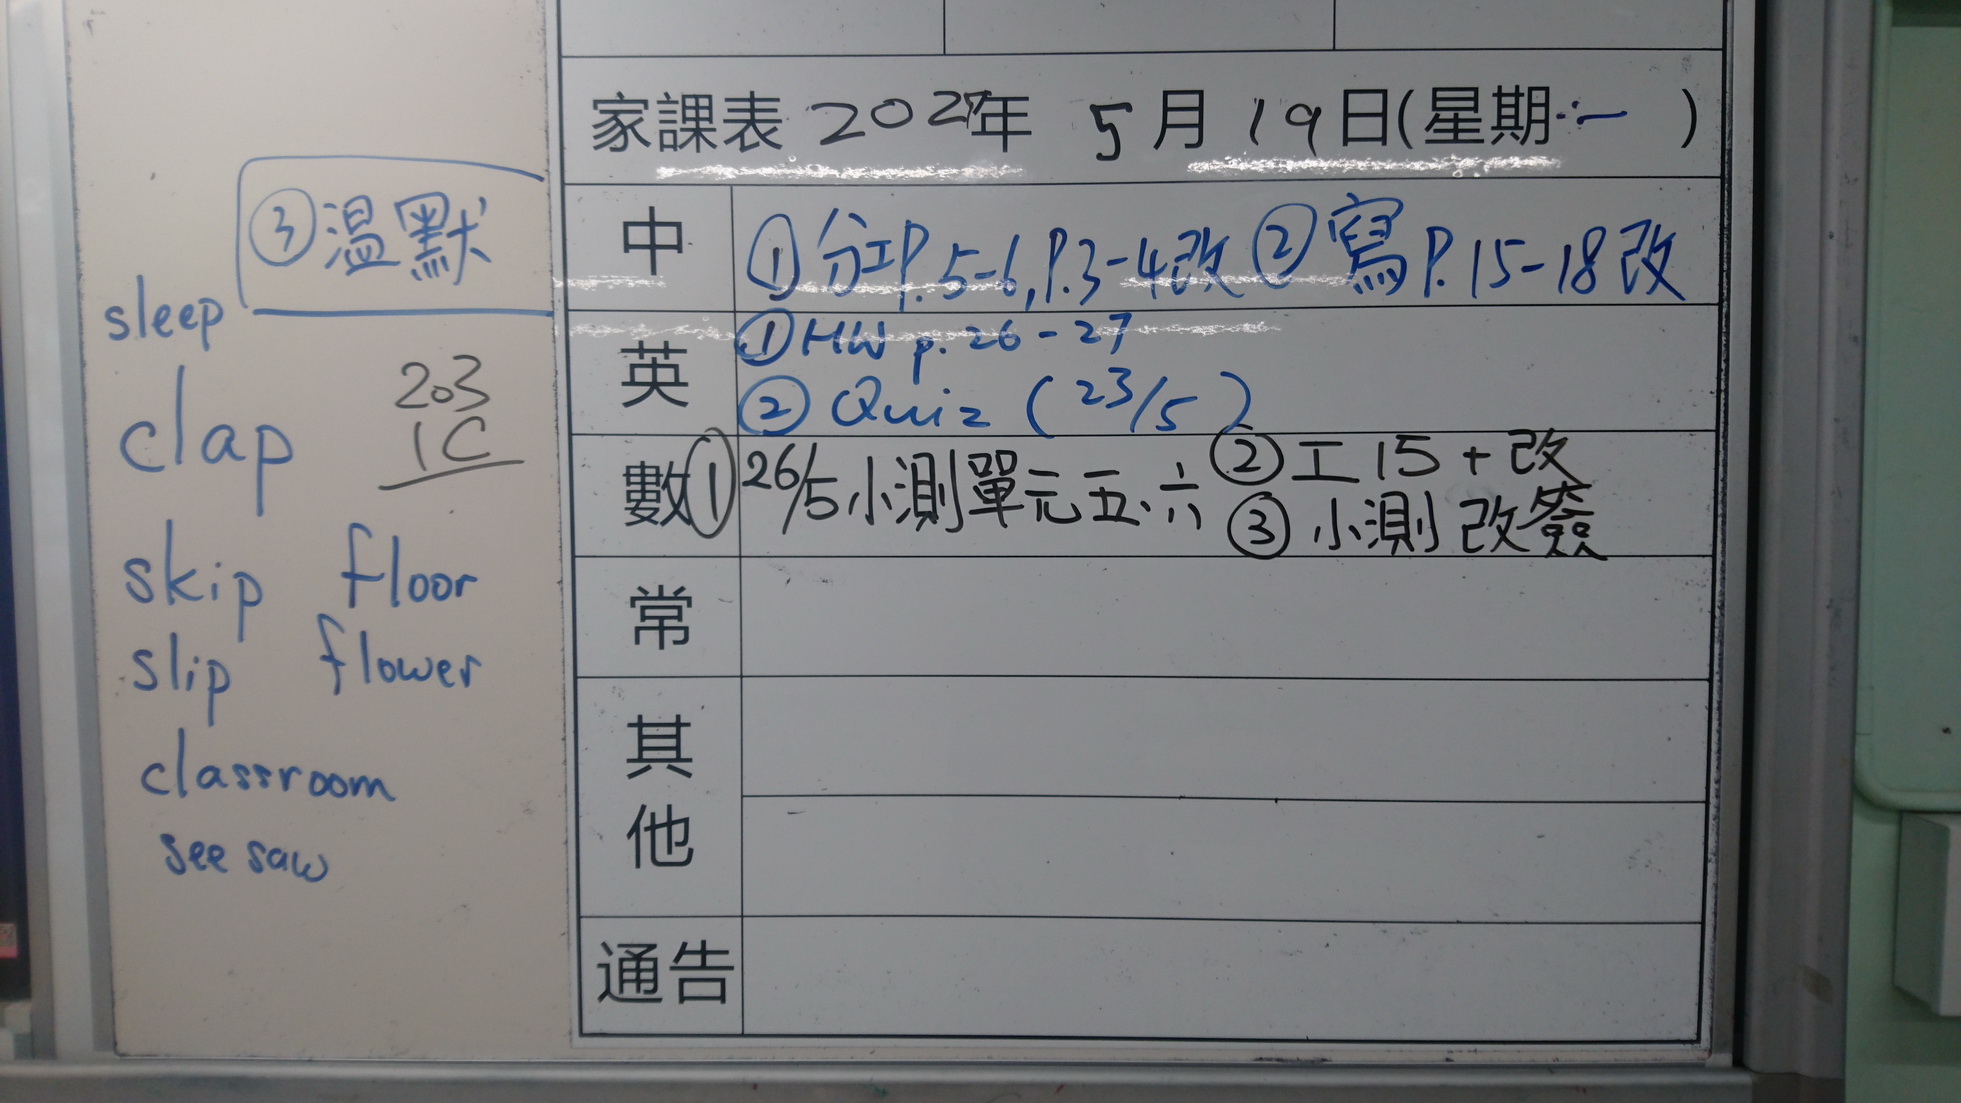 家課表 202 年 5月19日(星期一)
③溫默
中 ①分工P.5-6,P.3-4改 ②寫P.15-18改
英 ①HW p.26-27
②Quiz (23/5)
數 ①26/5小測單元五、六 ②工15+改
③小測改簽
常
其他
通告
sleep
203
1C
clap
skip floor
slip flower
classroom
see saw